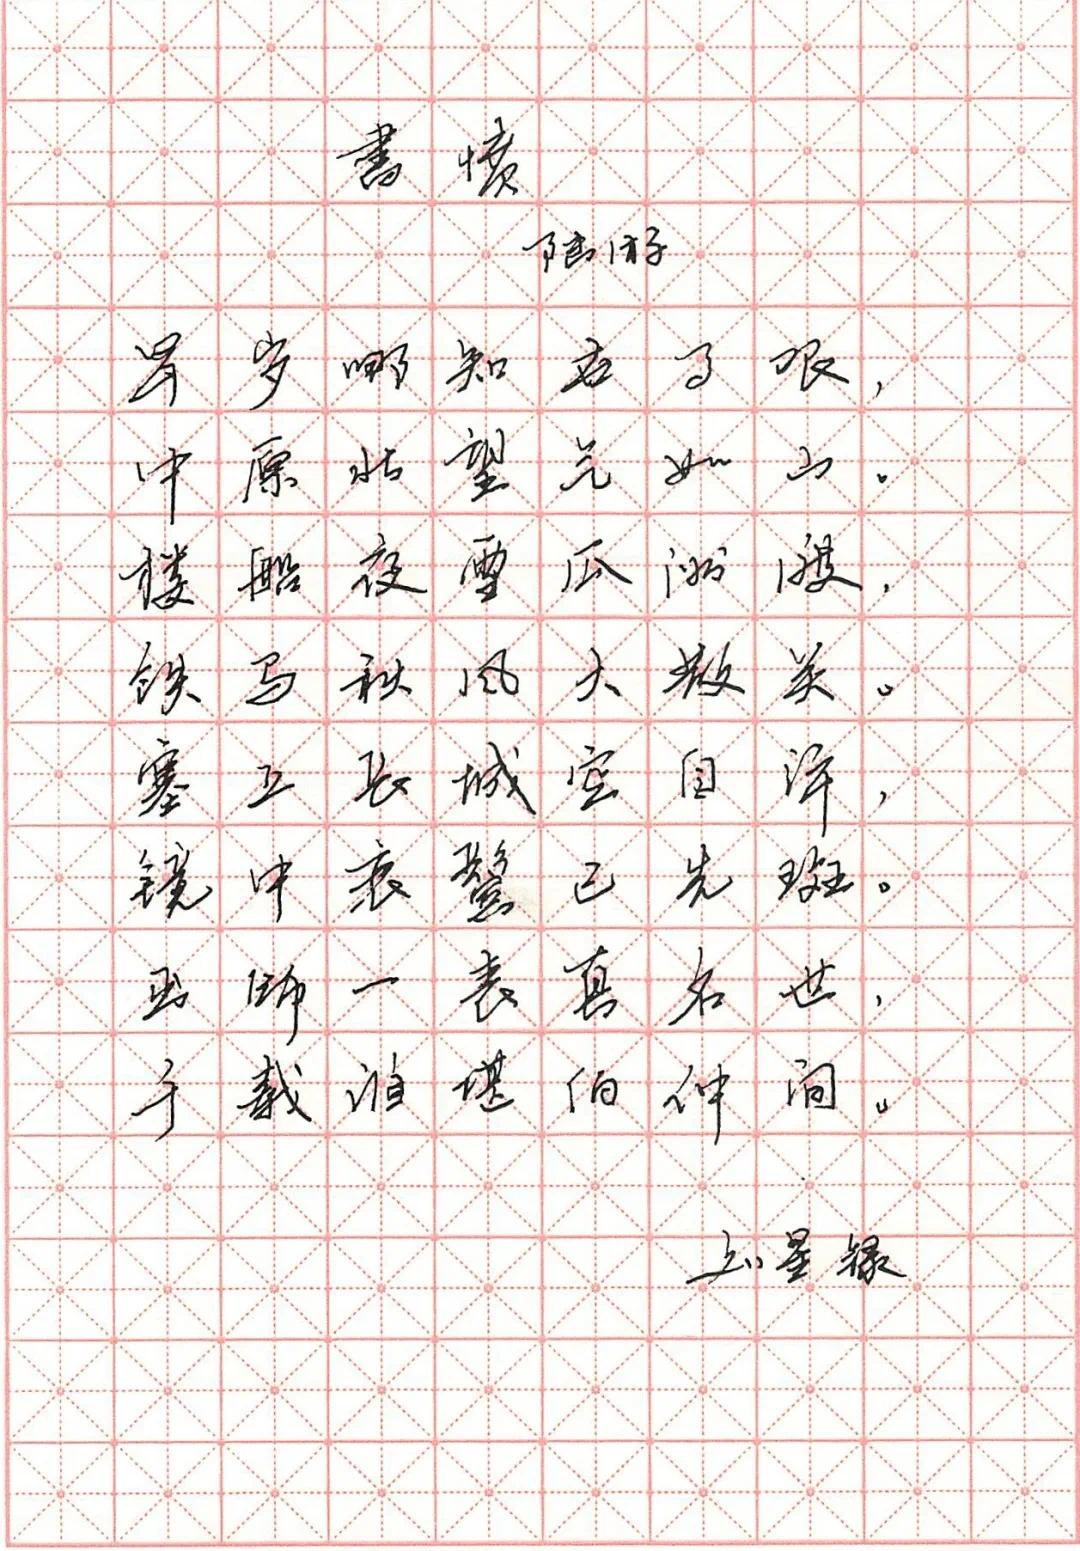 書愤
陆游
早岁哪知世事艰,
中原北望气如山。
楼船夜雪瓜洲渡,
铁马秋风大散关。
塞上长城空自许,
镜中衰鬓已先斑。
出师一表真名世,
千载谁堪伯仲间。
星